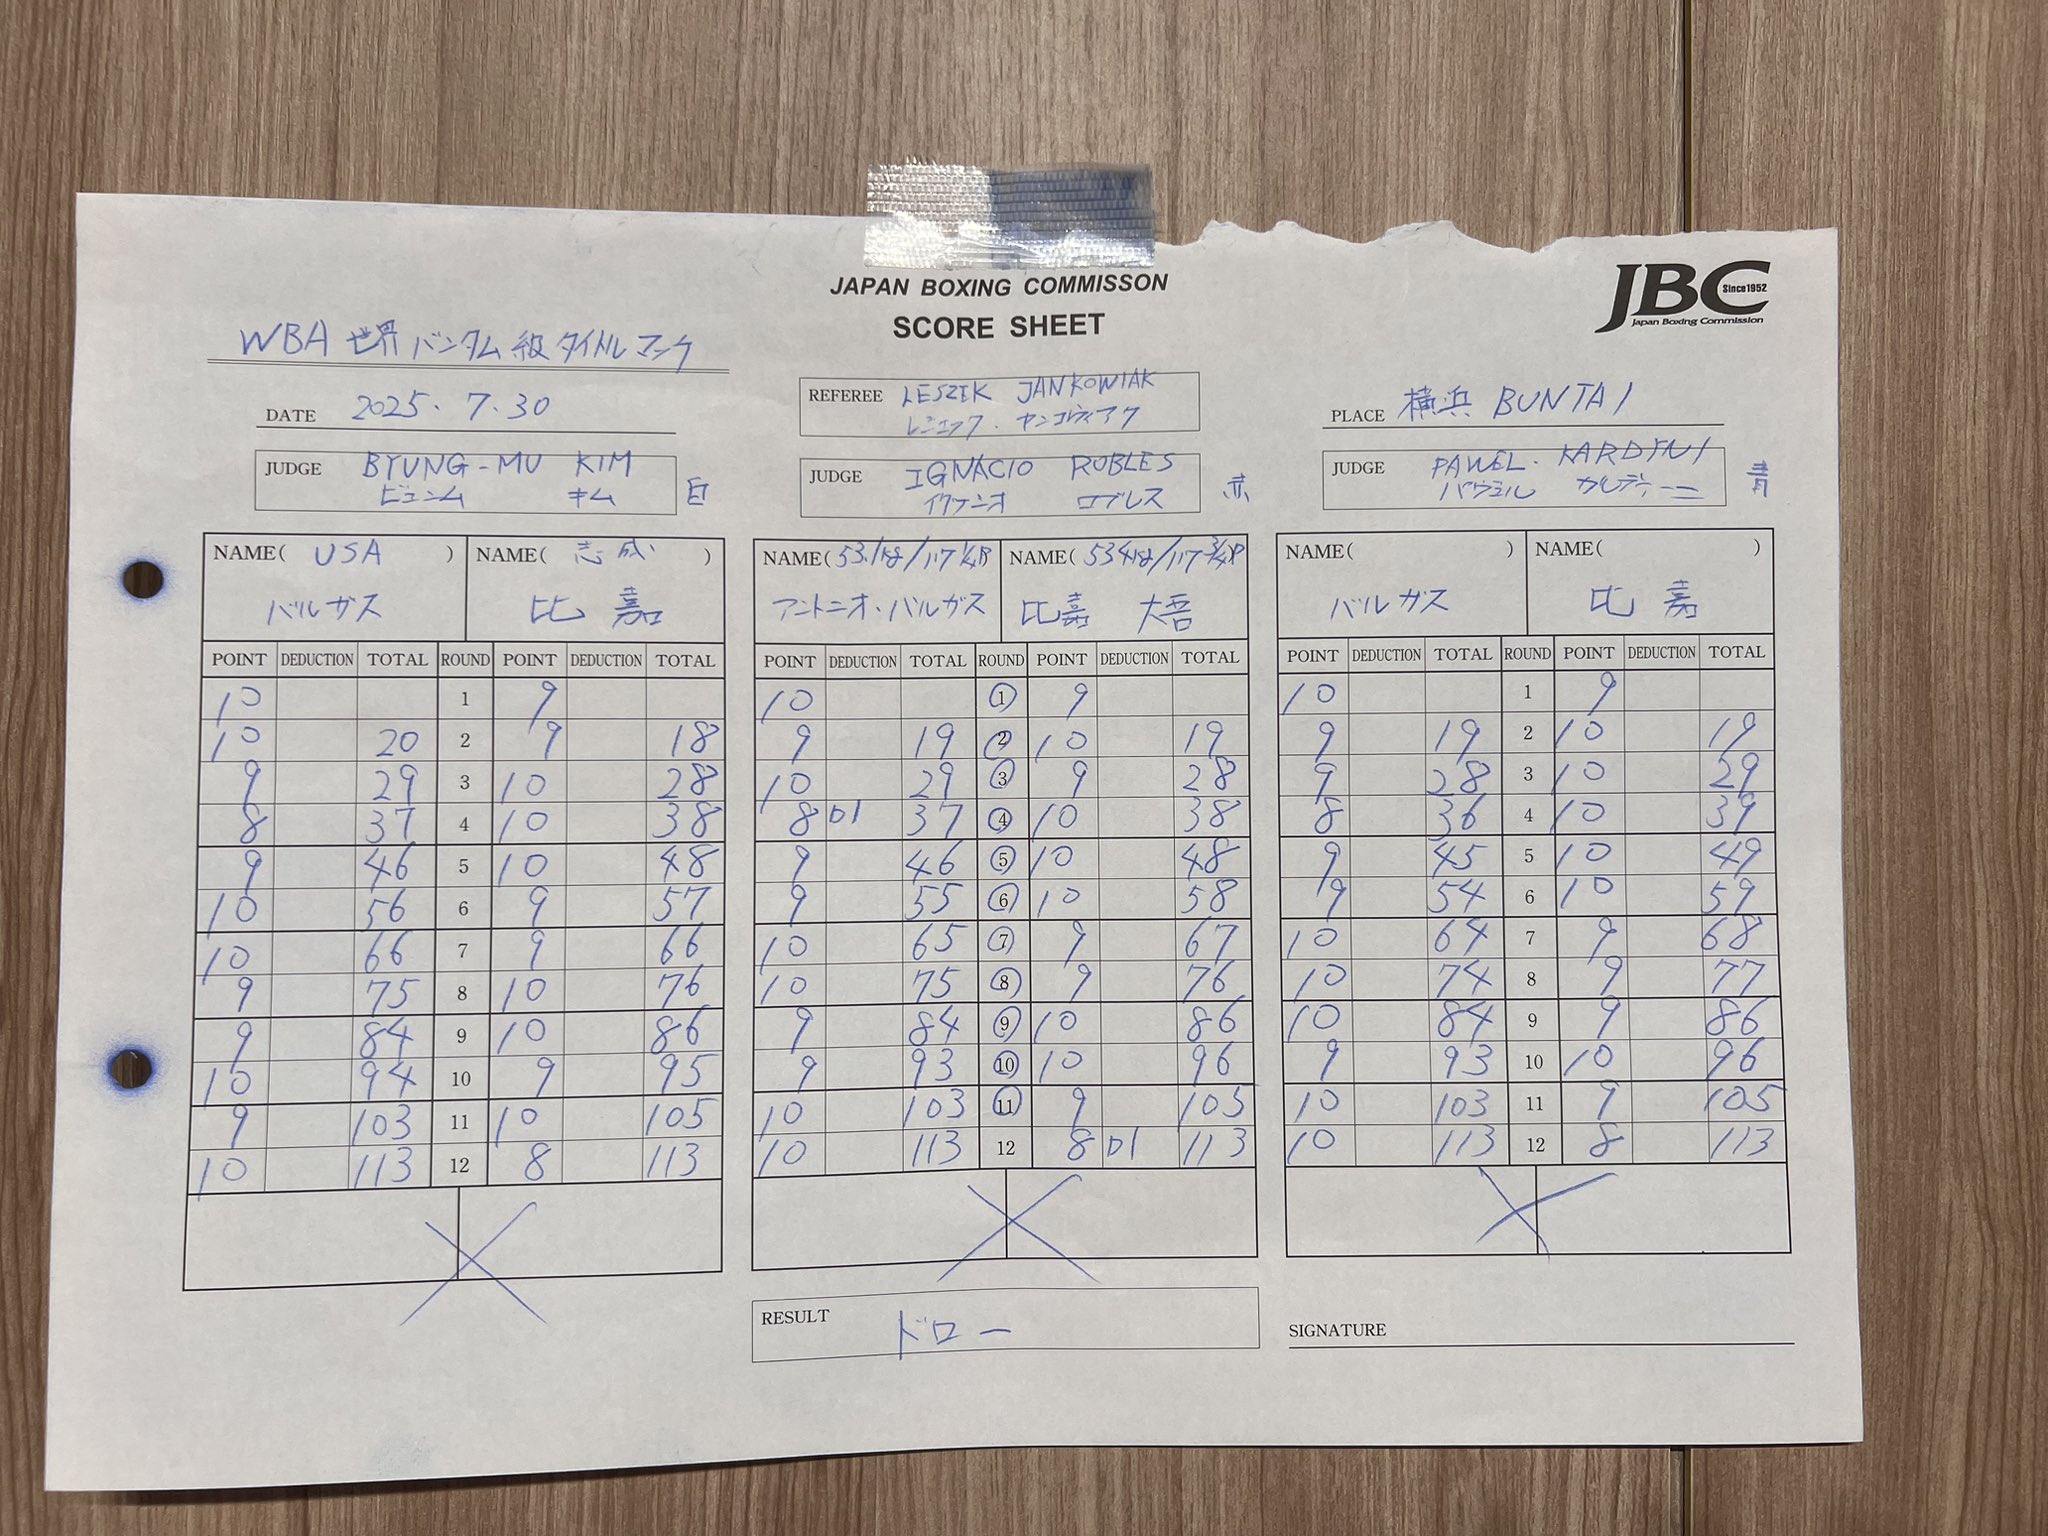 JAPAN BOXING COMMISSON
SCORE SHEET
JBC
Since1952
Japan Boxing Commission
WBA 世界 バンタム級 タイトルマッチ
DATE 2025. 7. 30
REFEREE LESZEK JANKOWIAK
レシェック・ヤンコヴィアク
PLACE 横浜 BUNTAI
JUDGE BYUNG-MU KIM
ビュンム キム 白
JUDGE IGNACIO ROBLES
イグナシオ ロブレス 赤
JUDGE PAWEL KARDYNI
パウエル カルディーニ 青
NAME( USA ) NAME( 志成 ) NAME(53.1kg/117 1/4P NAME(53.4kg/117 3/4P NAME( ) NAME( )
バルガス 比嘉 アントニオ・バルガス 比嘉 大吾 バルガス 比嘉
POINT DEDUCTION TOTAL ROUND POINT DEDUCTION TOTAL POINT DEDUCTION TOTAL ROUND POINT DEDUCTION TOTAL POINT DEDUCTION TOTAL ROUND POINT DEDUCTION TOTAL
10 1 9 10 1 9 10 1 9
10 20 2 9 18 9 19 2 10 19 9 19 2 10 19
9 29 3 10 28 10 29 3 9 28 9 28 3 10 29
8 37 4 10 38 8 D1 37 4 10 38 8 36 4 10 39
9 46 5 10 48 9 46 5 10 48 9 45 5 10 49
10 56 6 9 57 9 55 6 10 58 9 54 6 10 59
10 66 7 9 66 10 65 7 9 67 10 64 7 9 68
9 75 8 10 76 10 75 8 9 76 10 74 8 9 77
9 84 9 10 86 9 84 9 10 86 10 84 9 9 86
10 94 10 9 95 9 93 10 10 96 9 93 10 10 96
9 103 11 10 105 10 103 11 9 105 10 103 11 9 105
10 113 12 8 113 10 113 12 8 D1 113 10 113 12 8 113
RESULT ドロー
SIGNATURE